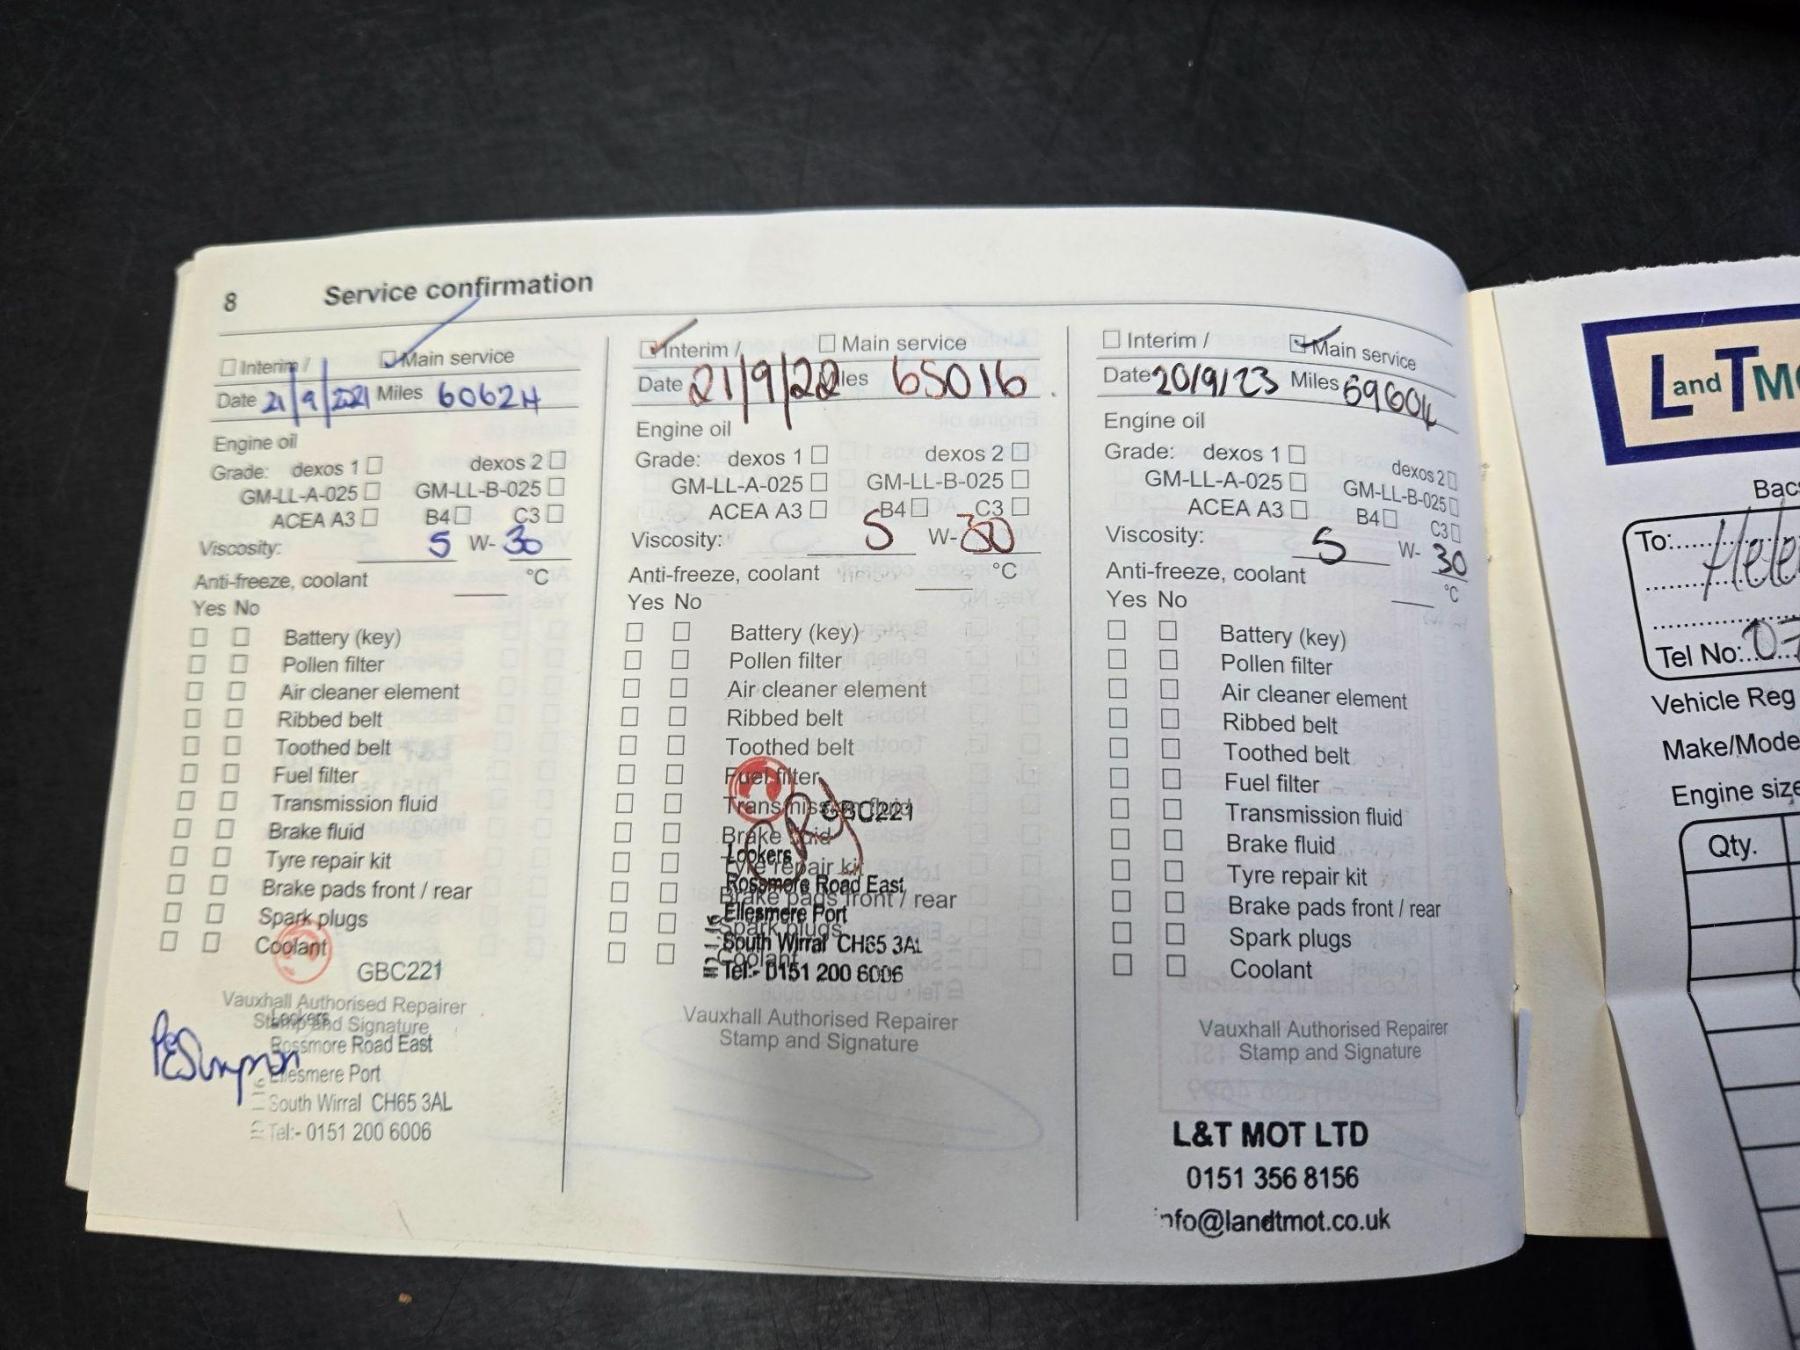 8 Service confirmation
Interim / Main service
Date 21/9/2021 Miles 60624
Engine oil
Grade: dexos 1 dexos 2
GM-LL-A-025 GM-LL-B-025
ACEA A3 B4 C3
Viscosity: 5 W- 30
Anti-freeze, coolant °C
Yes No
Battery (key)
Pollen filter
Air cleaner element
Ribbed belt
Toothed belt
Fuel filter
Transmission fluid
Brake fluid
Tyre repair kit
Brake pads front / rear
Spark plugs
Coolant
GBC221
Vauxhall Authorised Repairer
Stamp and Signature
Lookers
Rossmore Road East
Ellesmere Port
South Wirral CH65 3AL
Tel:- 0151 200 6006
Interim / Main service
Date 21/9/22 Miles 65016
Engine oil
Grade: dexos 1 dexos 2
GM-LL-A-025 GM-LL-B-025
ACEA A3 B4 C3
Viscosity: 5 W- 30
Anti-freeze, coolant °C
Yes No
Battery (key)
Pollen filter
Air cleaner element
Ribbed belt
Toothed belt
Fuel filter
Transmission fluid
GBC221
Brake fluid
Lookers
Tyre repair kit
Rossmore Road East
Brake pads front / rear
Ellesmere Port
Spark plugs
South Wirral CH65 3AL
Coolant
Tel:- 0151 200 6006
Vauxhall Authorised Repairer
Stamp and Signature
Interim / Main service
Date 20/9/23 Miles 69604
Engine oil
Grade: dexos 1 dexos 2
GM-LL-A-025 GM-LL-B-025
ACEA A3 B4 C3
Viscosity: 5 W- 30
Anti-freeze, coolant °C
Yes No
Battery (key)
Pollen filter
Air cleaner element
Ribbed belt
Toothed belt
Fuel filter
Transmission fluid
Brake fluid
Tyre repair kit
Brake pads front / rear
Spark plugs
Coolant
Vauxhall Authorised Repairer
Stamp and Signature
L&T MOT LTD
0151 356 8156
info@landtmot.co.uk
L and T MO
Bacs
To:
Tel No: 07
Vehicle Reg
Make/Mode
Engine size
Qty.